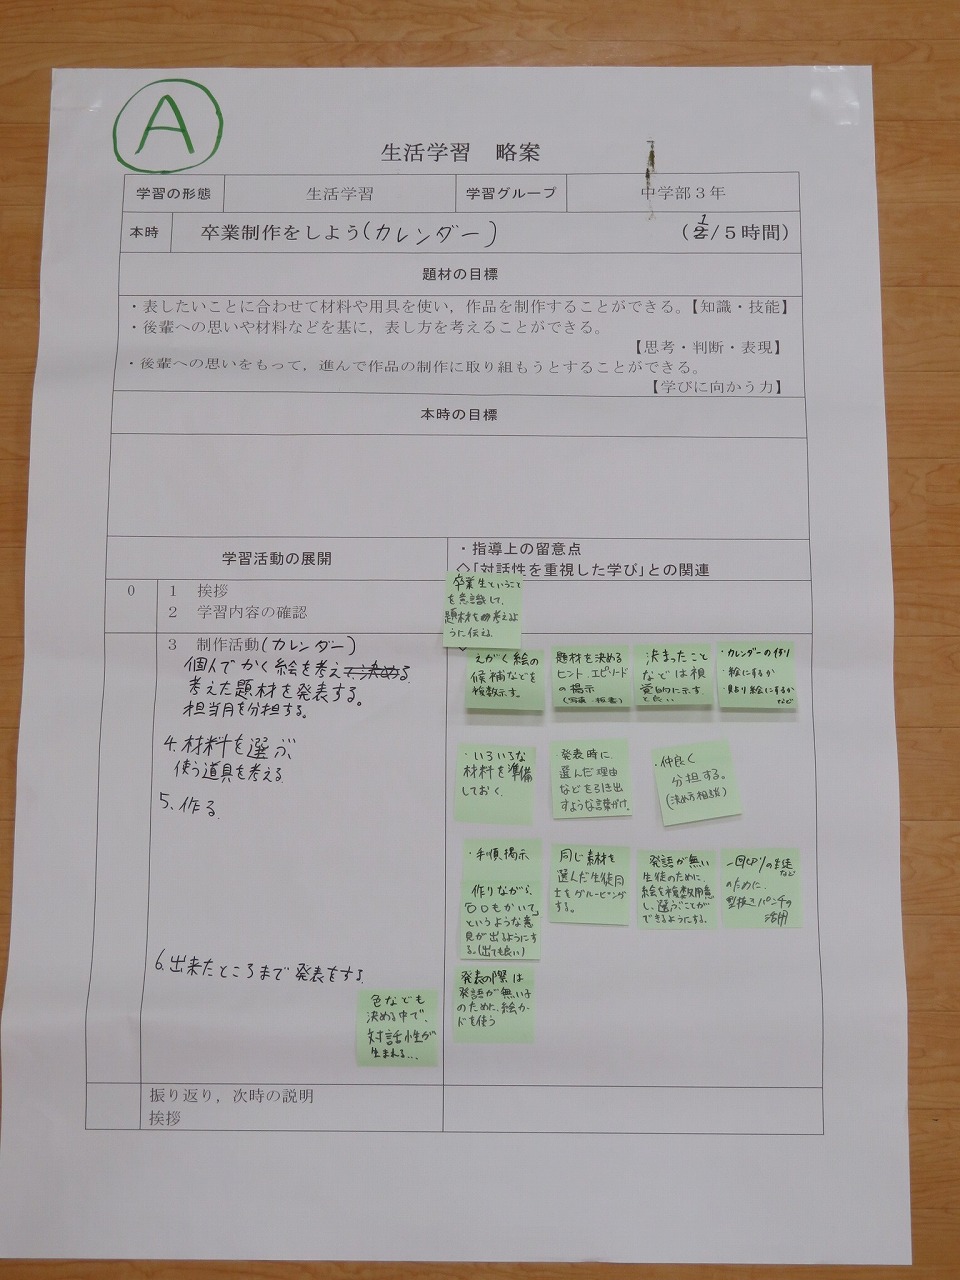 A
生活学習 略案
学習の形態 生活学習 学習グループ 中学部3年
本時 卒業制作をしよう(カレンダー) (1/5時間)
題材の目標
・表したいことに合わせて材料や用具を使い，作品を制作することができる。【知識・技能】
・後輩への思いや材料などを基に，表し方を考えることができる。
【思考・判断・表現】
・後輩への思いをもって，進んで作品の制作に取り組もうとすることができる。
【学びに向かう力】
本時の目標
学習活動の展開
・指導上の留意点
◇「対話性を重視した学び」との関連
0 1 挨拶
2 学習内容の確認
卒業生ということ
を意識して、
題材を考えるよ
うに伝える
3 制作活動(カレンダー)
個人でかく絵を考える
考えた題材を発表する。
担当月を分担する。
えがく絵の
候補などを
複数示す。
題材を決める
ヒント、エピソード
の掲示
(写真・板書)
決まったこと
などは視
覚的に示す
と良い
・カレンダーの作り
・絵にするか
・貼り絵にするか
など
4. 材料を選ぶ
使う道具を考える
・いろいろな
材料を準備
しておく。
・発表時に
選んだ理由
などを引き出
すような言葉がけ。
・仲良く
分担する。
(決め方相談)
5. 作る
・手順掲示
作りながら、
「○○もかいて」
というような意
見が出るようにす
る。(出ても良い)
同じ素材を
選んだ生徒同
士をグルーピング
する。
発語が無い
生徒のために、
絵を複数用意
し、選ぶことが
できるようにする。
の生徒
など
のために、
型抜きパンチの
活用
6. 出来たところまで発表をする
色なども
決める中で、
対話性が
生まれる…
発表の際は
発語が無い子
のために、絵カー
ドを使う
振り返り，次時の説明
挨拶